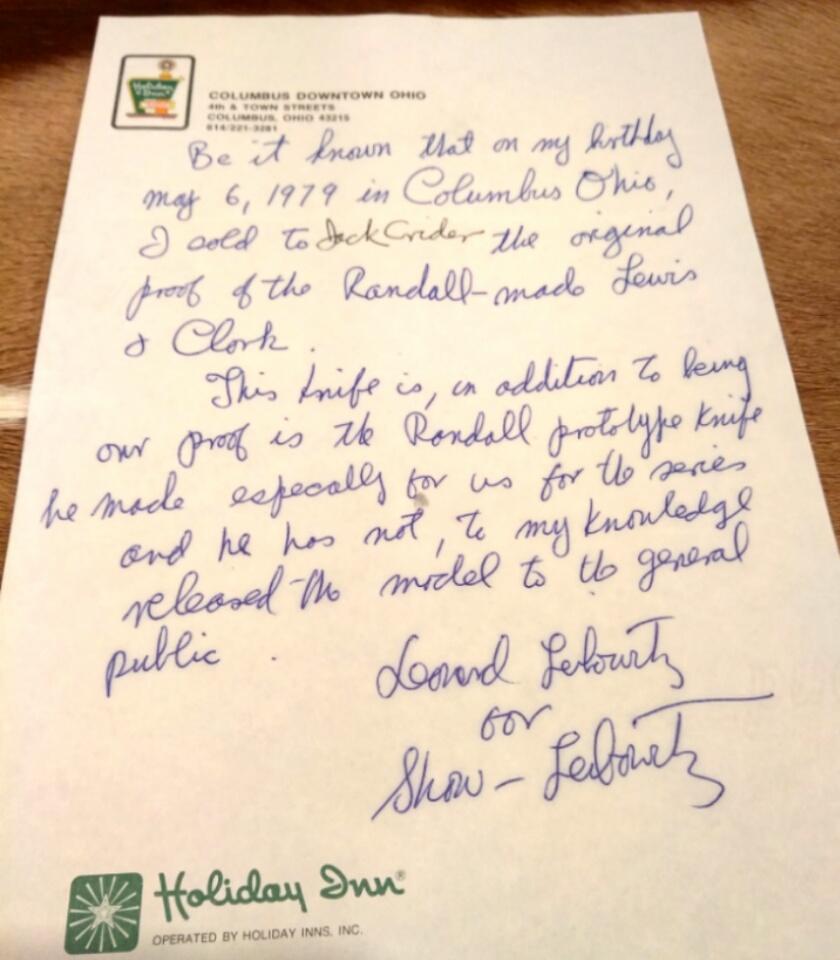 Holiday Inn
COLUMBUS DOWNTOWN OHIO
4th & TOWN STREETS
COLUMBUS, OHIO 43215
614/221-3281
Be it known that on my birthday
may 6, 1979 in Columbus Ohio,
I sold to Jack Crider the original
proof of the Randall-made Lewis
& Clark.
This knife is, in addition to being
our proof is the Randall prototype knife
he made especially for us for the series
and he has not, to my knowledge
released the model to the general
public.
Leonard Leibowitz
for
Shaw-Leibowitz
Holiday Inn®
OPERATED BY HOLIDAY INNS. INC.